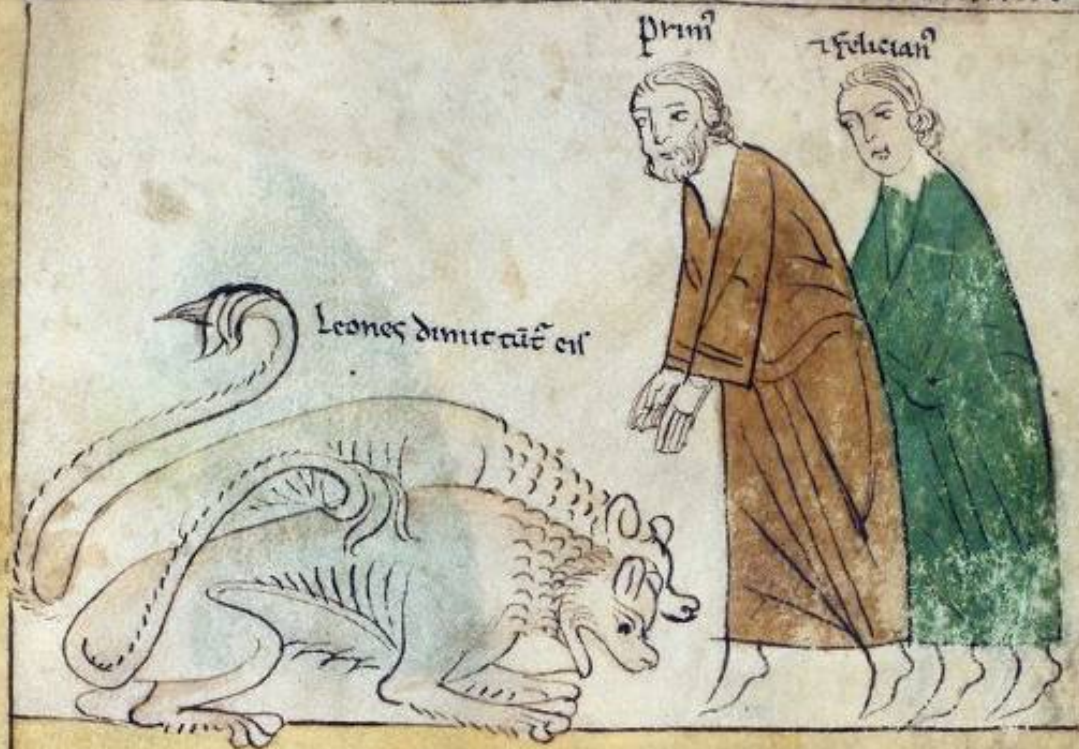 Prim᾽
⁊ felician᾽
Leones dimittūt᷑ eis